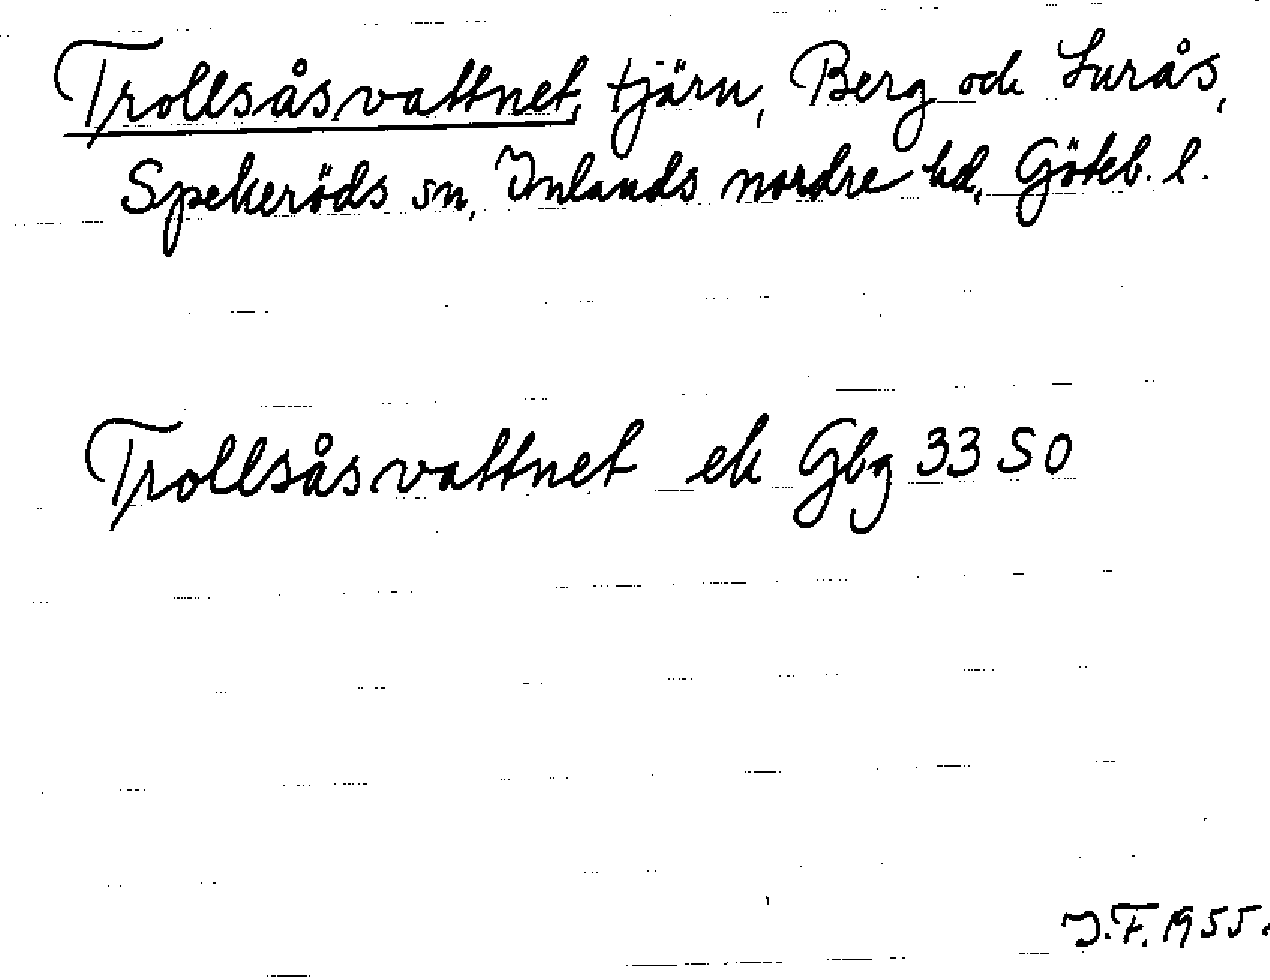 Trollsåsvattnet, tjärn, Berg och Lurås,
Spekeröds sn, Inlands nordre hd, Göteb. l.
Trollsåsvattnet ek Gbg 33 SO
J.F. 1955.